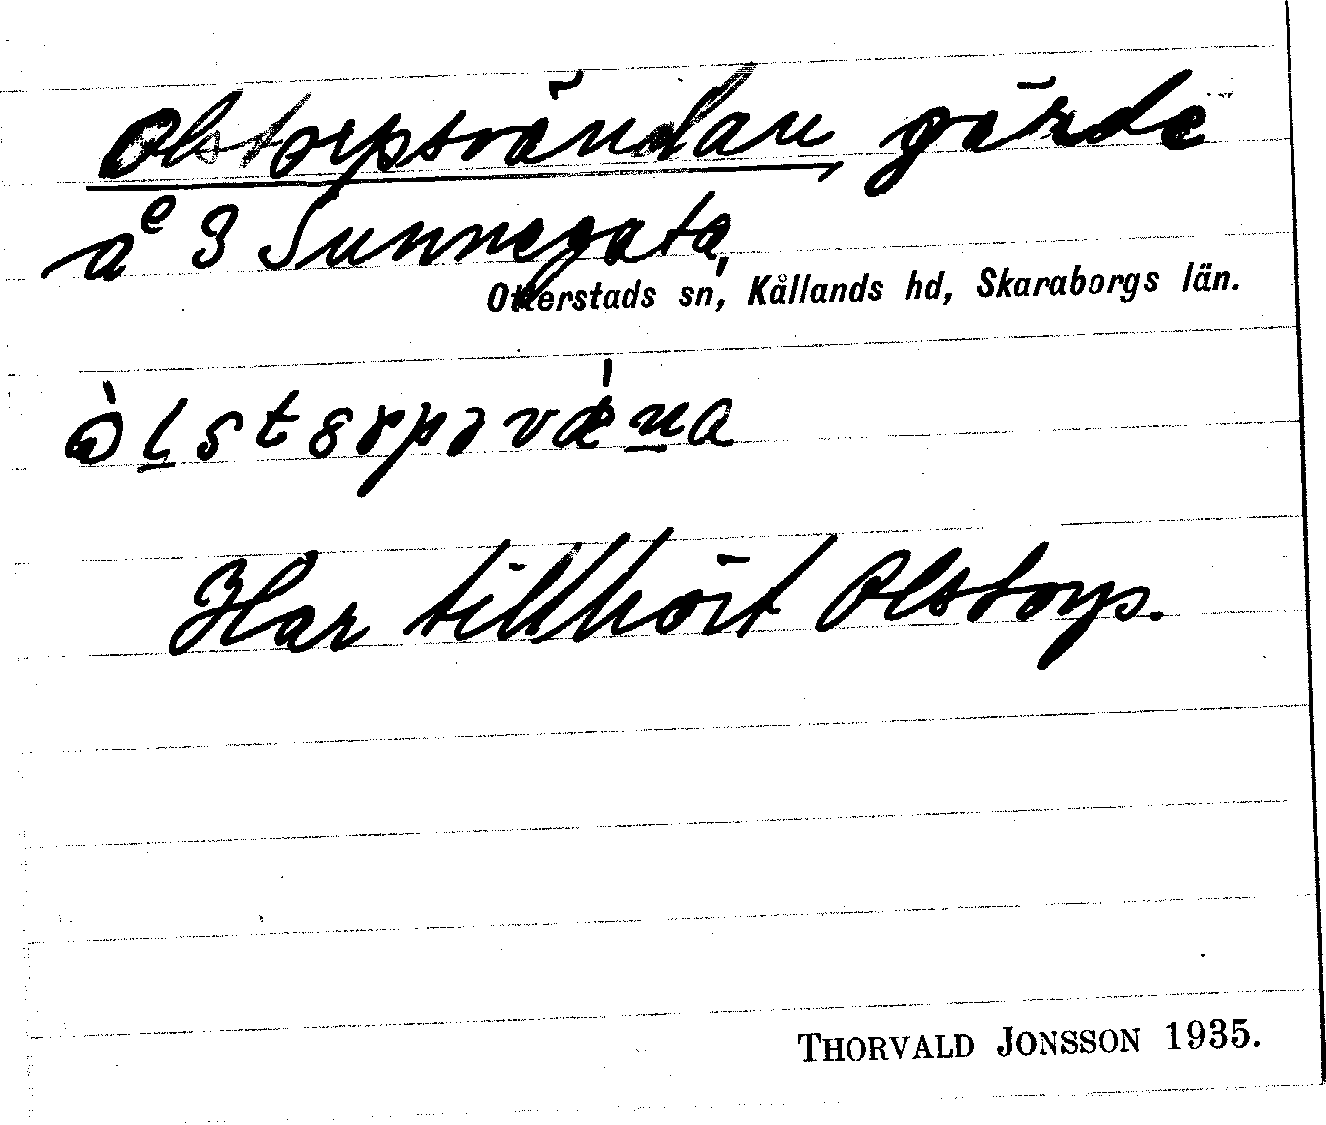 Olstorpsvändan, gärde
å 3 Sunnegata,
Otterstads sn, Kållands hd, Skaraborgs län.
Har tillhört Olstorp.
THORVALD JONSSON 1935.